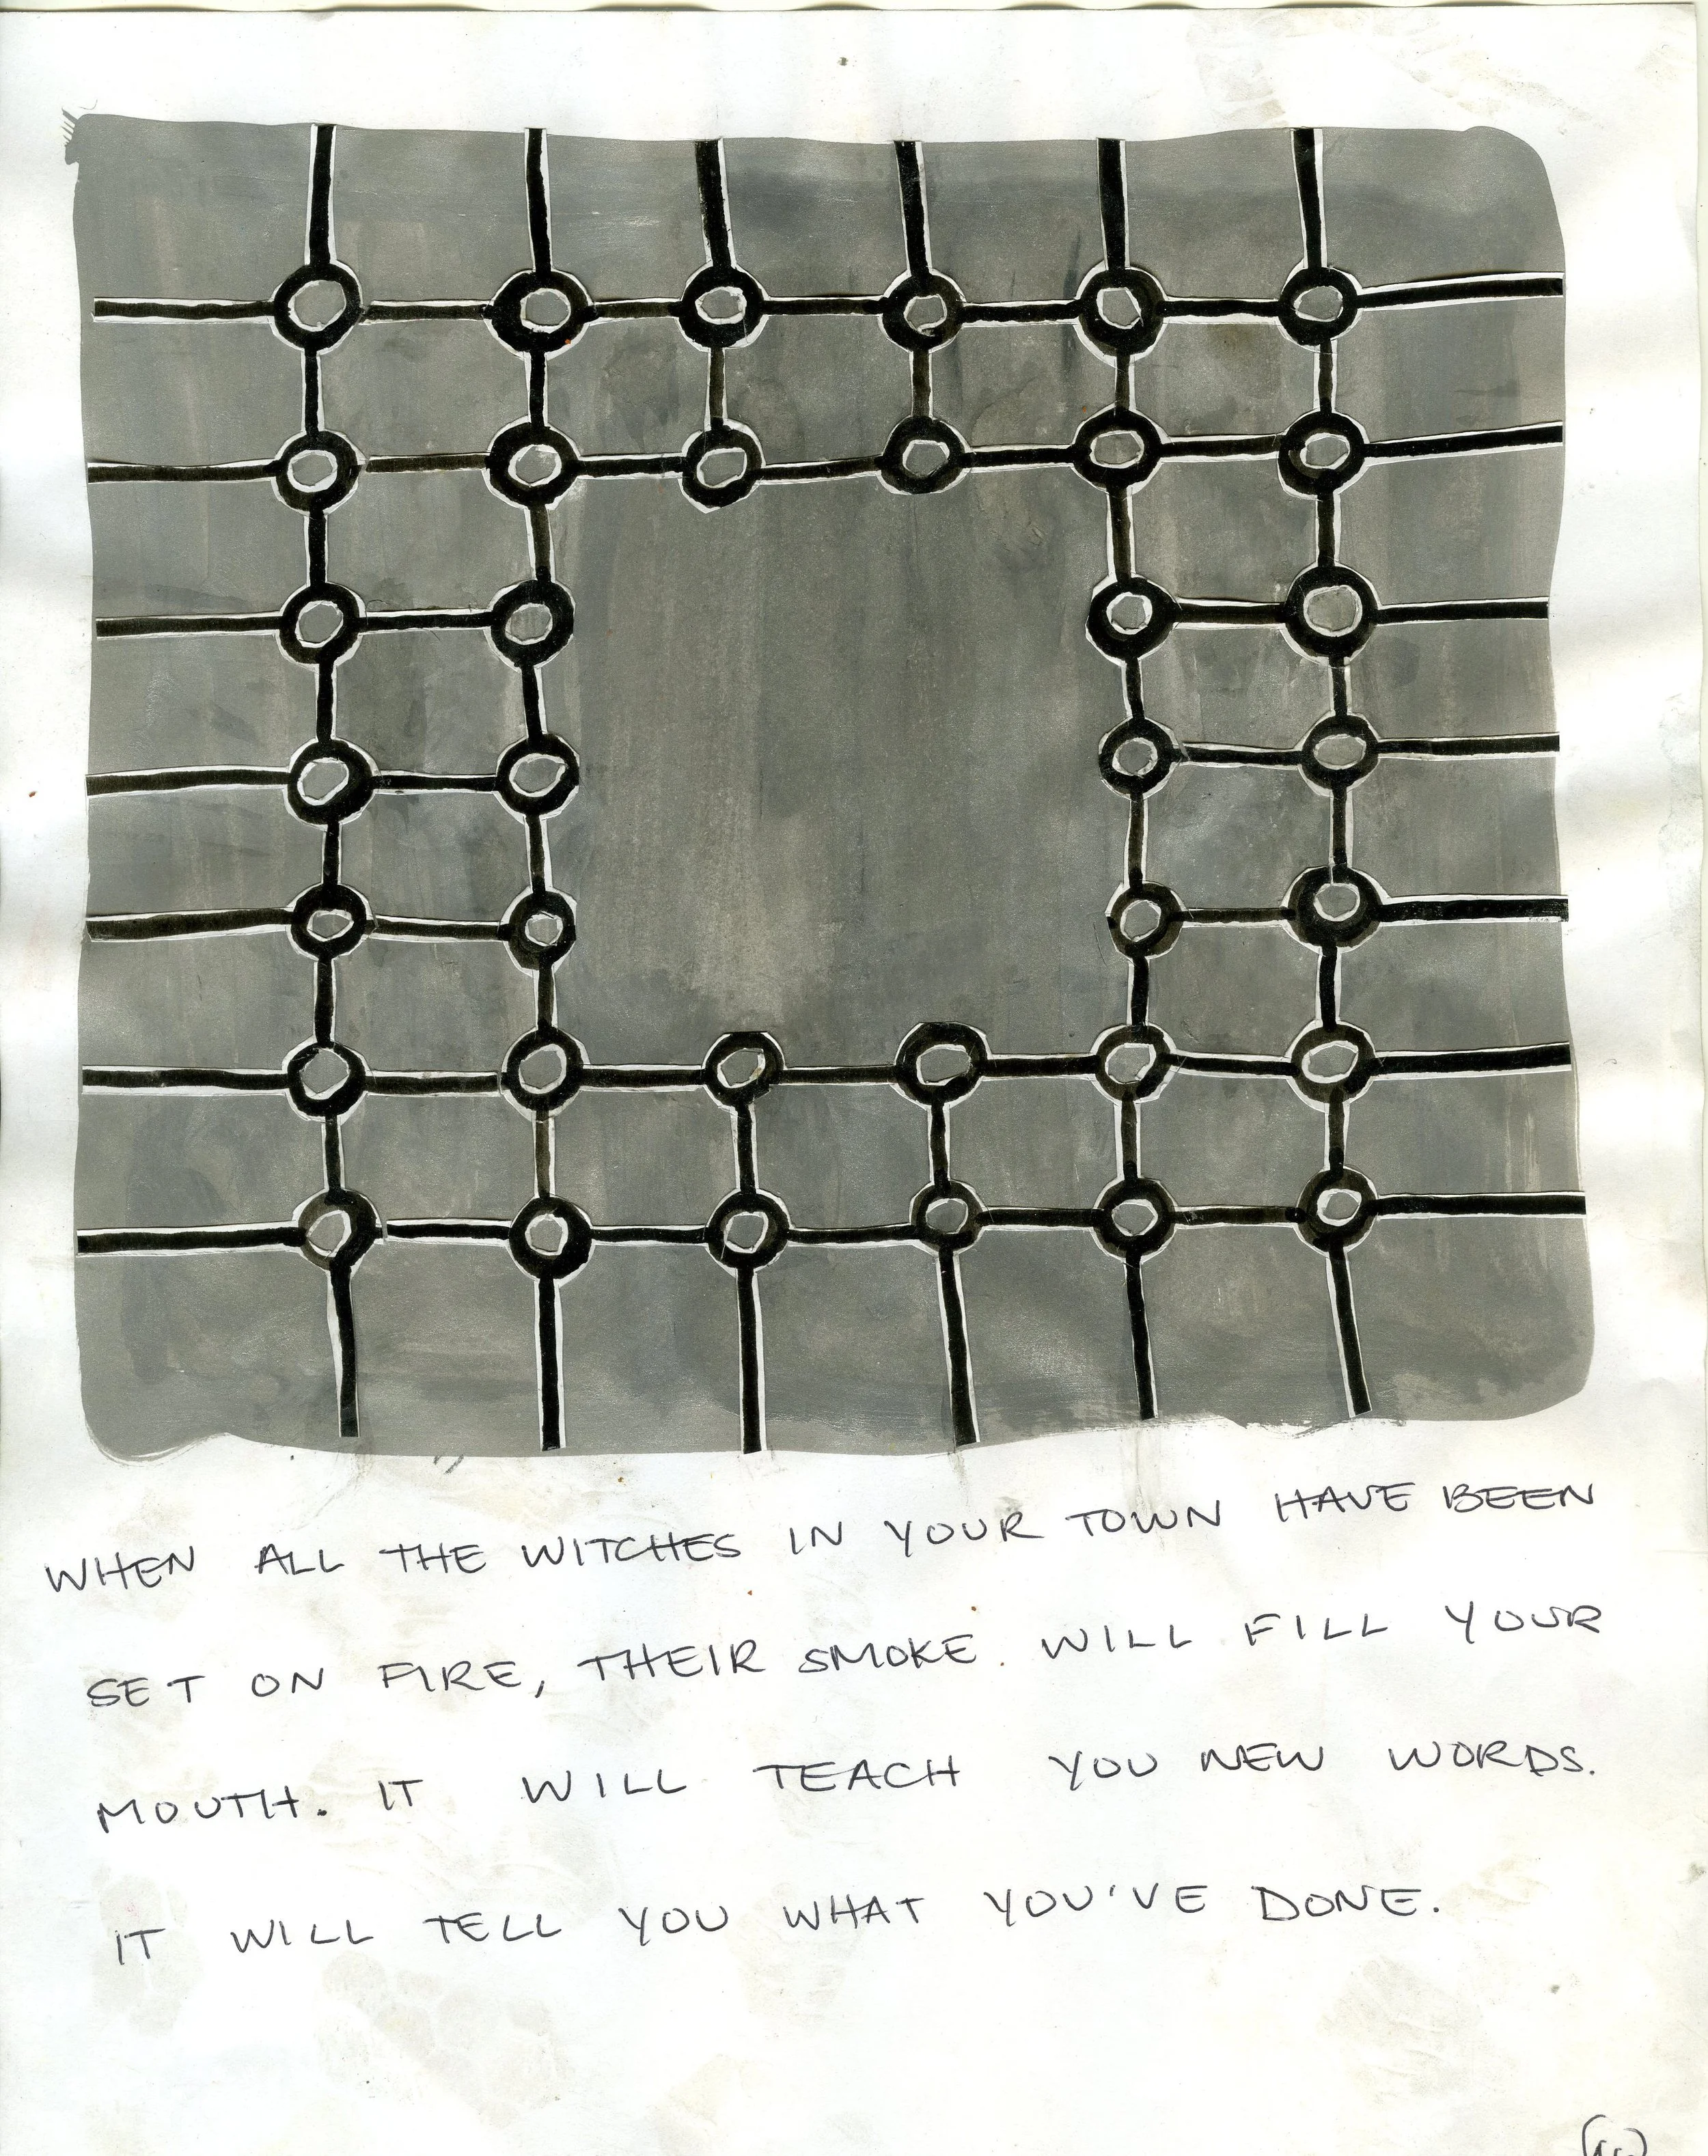 WHEN ALL THE WITCHES IN YOUR TOWN HAVE BEEN
SET ON FIRE, THEIR SMOKE WILL FILL YOUR
MOUTH. IT WILL TEACH YOU NEW WORDS.
IT WILL TELL YOU WHAT YOU'VE DONE.